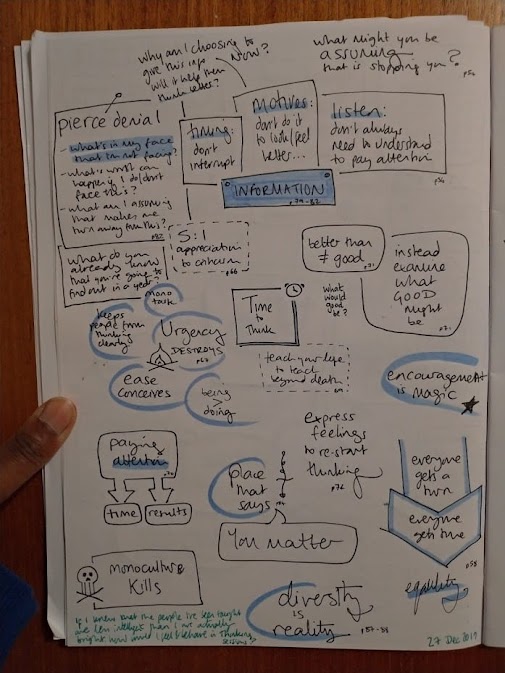 why am I choosing to
give this info NOW?
will it help them
think better?
what might you be
assuming
that is stopping you?
p50
pierce denial
- what's in my face
that I'm not facing?
- what's worst can
happen if I do/don't
face this?
- what am I assuming
that makes me
turn away from this?
p82
timing:
don't
interrupt
motives:
don't do it
to look/feel
better...
listen:
don't always
need to understand
to pay attention
INFORMATION
p79-82
what do you
already know
that you're going to
find out in a year?
5:1
appreciation
to criticism
p66
better than
≠ good
p71
instead
examine
what
GOOD
might
be
p71
mono
task
keeps
people from
thinking
clearly
Urgency
DESTROYS
ease
conceives
being
>
doing
Time
to
Think
what
would
good
be?
teach your life
to teach
beyond death
encouragement
is magic
paying
attention
time
results
place
that
says
You matter
express
feelings
to re-start
thinking
p76
everyone
gets a
turn
everyone
gets time
p58
equality
monoculture
Kills
diversity
is
reality
p87-88
If I knew that the people I've been taught
are less intelligent than I are actually
bright how would I feel & behave in a Thinking
session?
27 Dec 2017